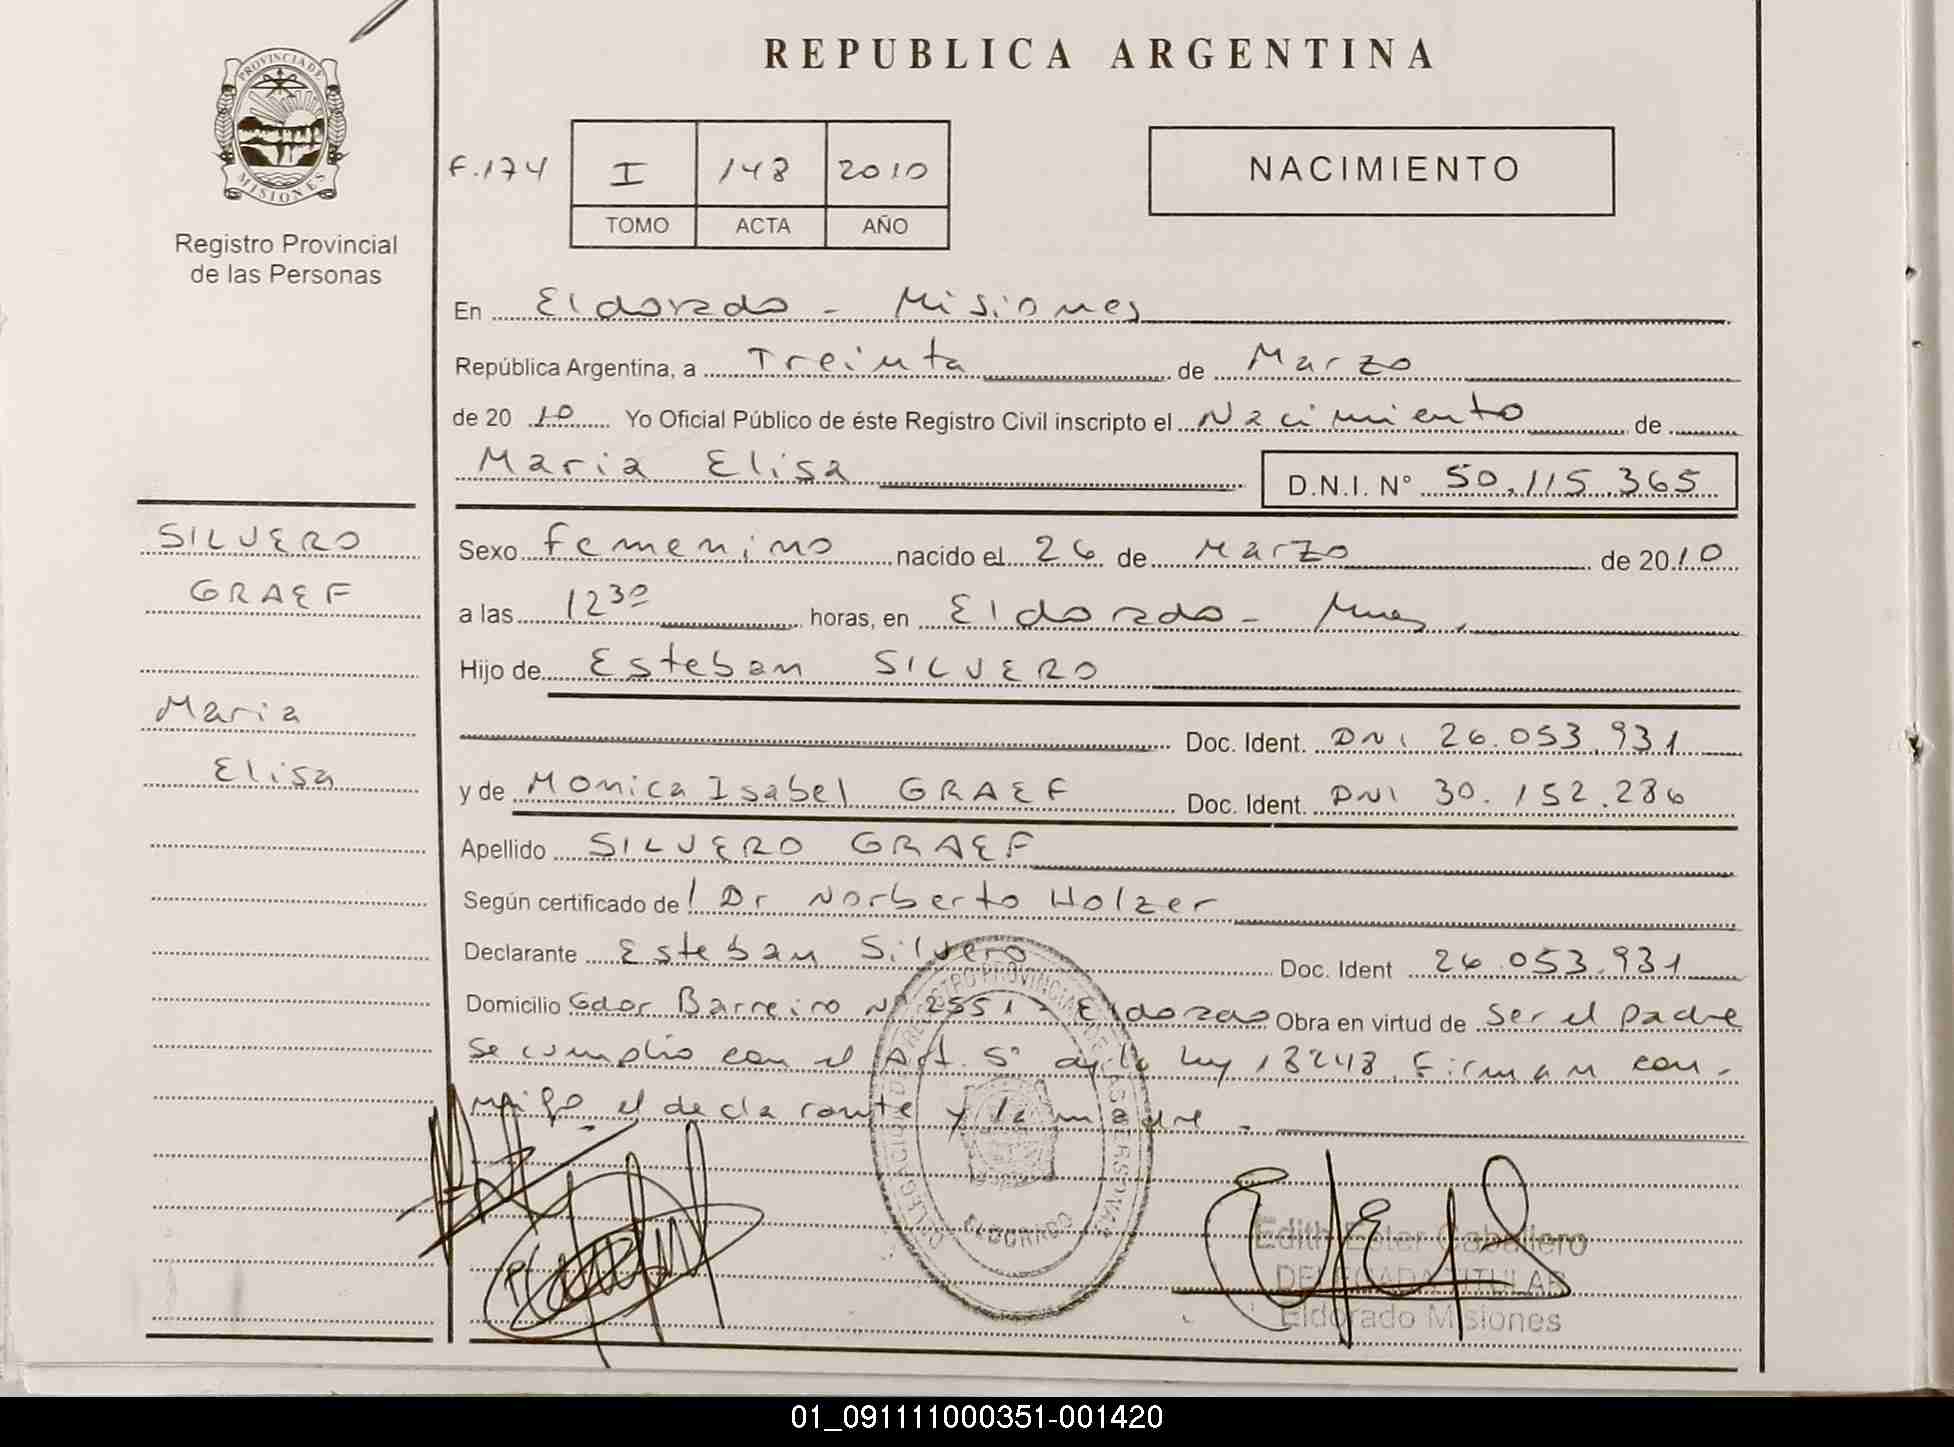 REPUBLICA ARGENTINA
PROVINCIA DE
MISIONES
Registro Provincial
de las Personas
F. 174
I 148 2010
TOMO ACTA AÑO
NACIMIENTO
En Eldorado - Misiones
República Argentina, a Treinta de Marzo
de 20 10 Yo Oficial Público de éste Registro Civil inscripto el Nacimiento de
Maria Elisa D.N.I. N° 50.115.365
SILVERO
GRAEF
Maria
Elisa
Sexo femenino nacido el 26 de Marzo de 2010
a las 12 30 horas, en Eldorado - Mnes.
Hijo de Esteban SILVERO
Doc. Ident. DNI 26.053.931
y de Monica Isabel GRAEF Doc. Ident. DNI 30.152.286
Apellido SILVERO GRAEF
Según certificado de / Dr Norberto Holzer
Declarante Esteban Silvero Doc. Ident 26.053.931
Domicilio Gdor Barreiro N° 2551 - Eldorado Obra en virtud de ser el padre
se cumplio con el Art. 5° de la ley 18248. Firman con-
migo el declarante y la madre.
ELDORADO
Edith Ester Caballero
DELEGADA TITULAR
Eldorado Misiones
01_091111000351-001420